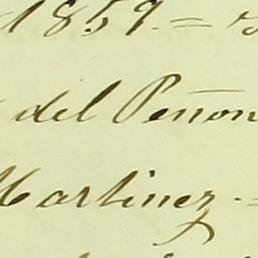 1859. =
del Peñon
Martinez. =